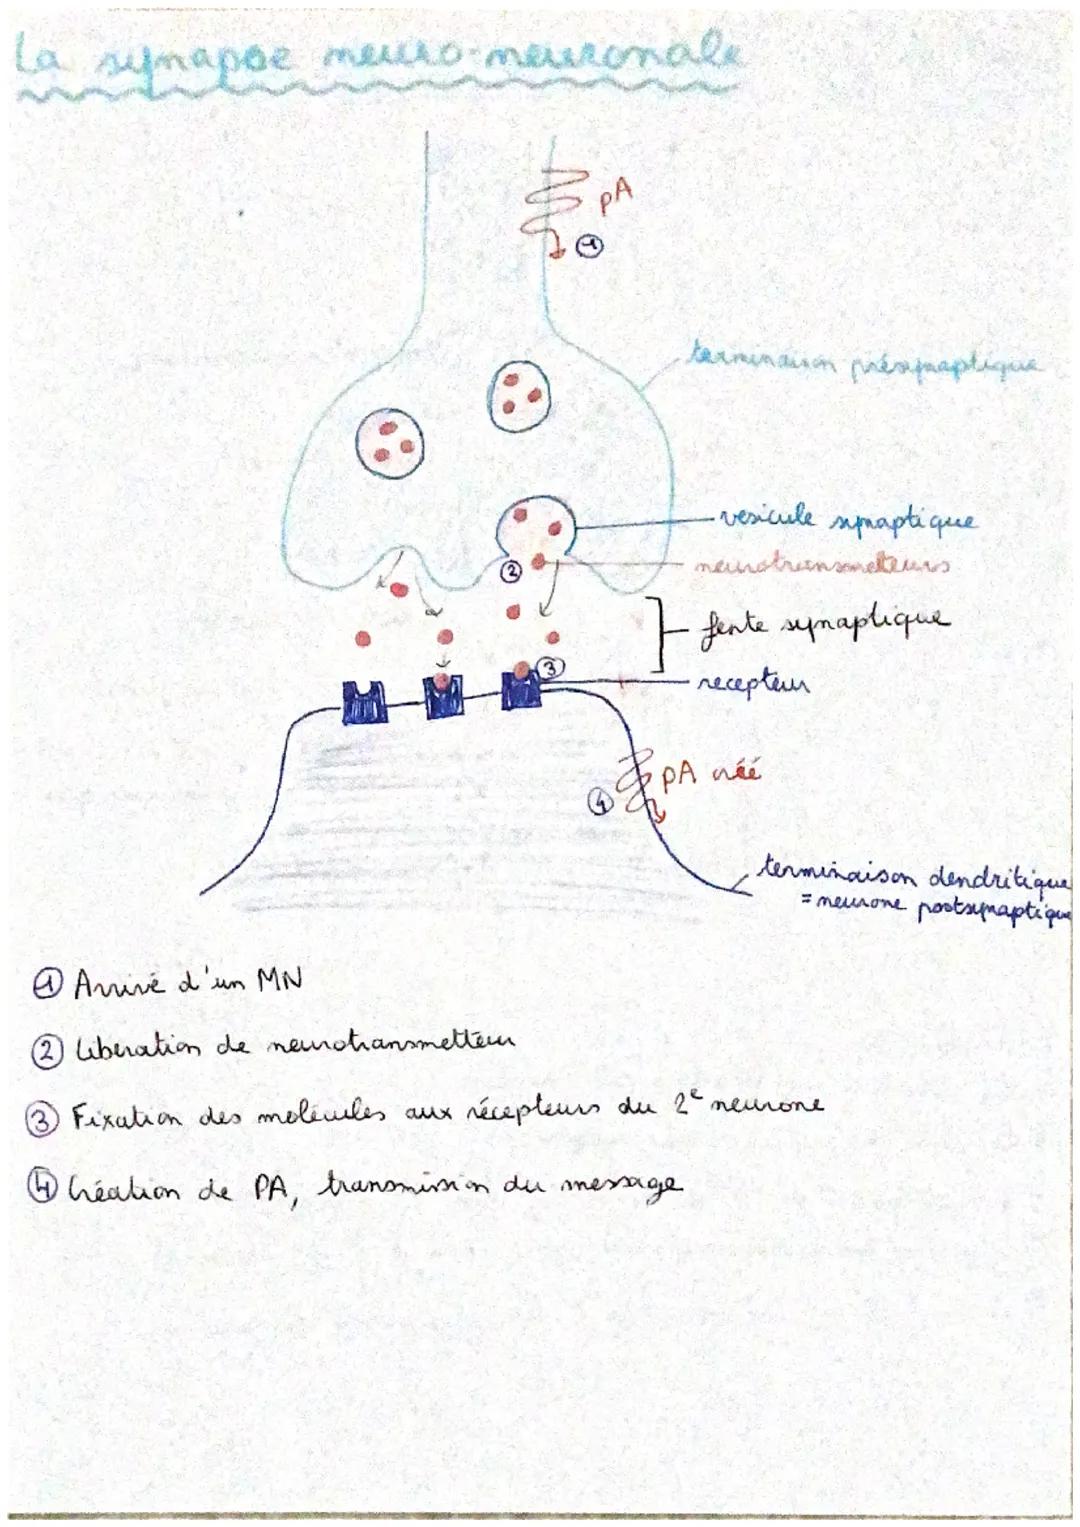 La synapse neuro-neuronale
pA
1
terminaison présynaptique
vesicule synaptique
neurotransmetteurs
2
fente synaptique
3
recepteur
pA créé
4
terminaison dendritique
= neurone postsynaptique
1 Arrivé d'un MN
2 Libération de neurotransmetteur
3 Fixation des molécules aux récepteurs du 2e neurone
4 Création de PA, transmission du message